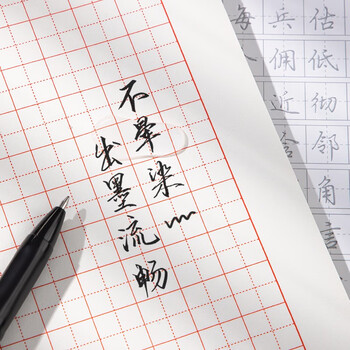 不晕染~
出墨流畅
估低彻邻角言
兵佣近
每